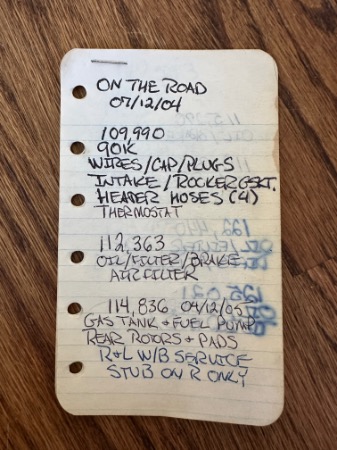 ON THE ROAD
07/12/04
109,990
90K
WIRES/CAP/PLUGS
INTAKE/ROCKER GSKT.
HEATER HOSES (4)
THERMOSTAT
112,363
OIL/FILTER/BRAKE
AIR FILTER
114,836 04/12/05
GAS TANK & FUEL PUMP
REAR ROTORS & PADS
R&L W/B SERVICE
STUB ON R ONLY